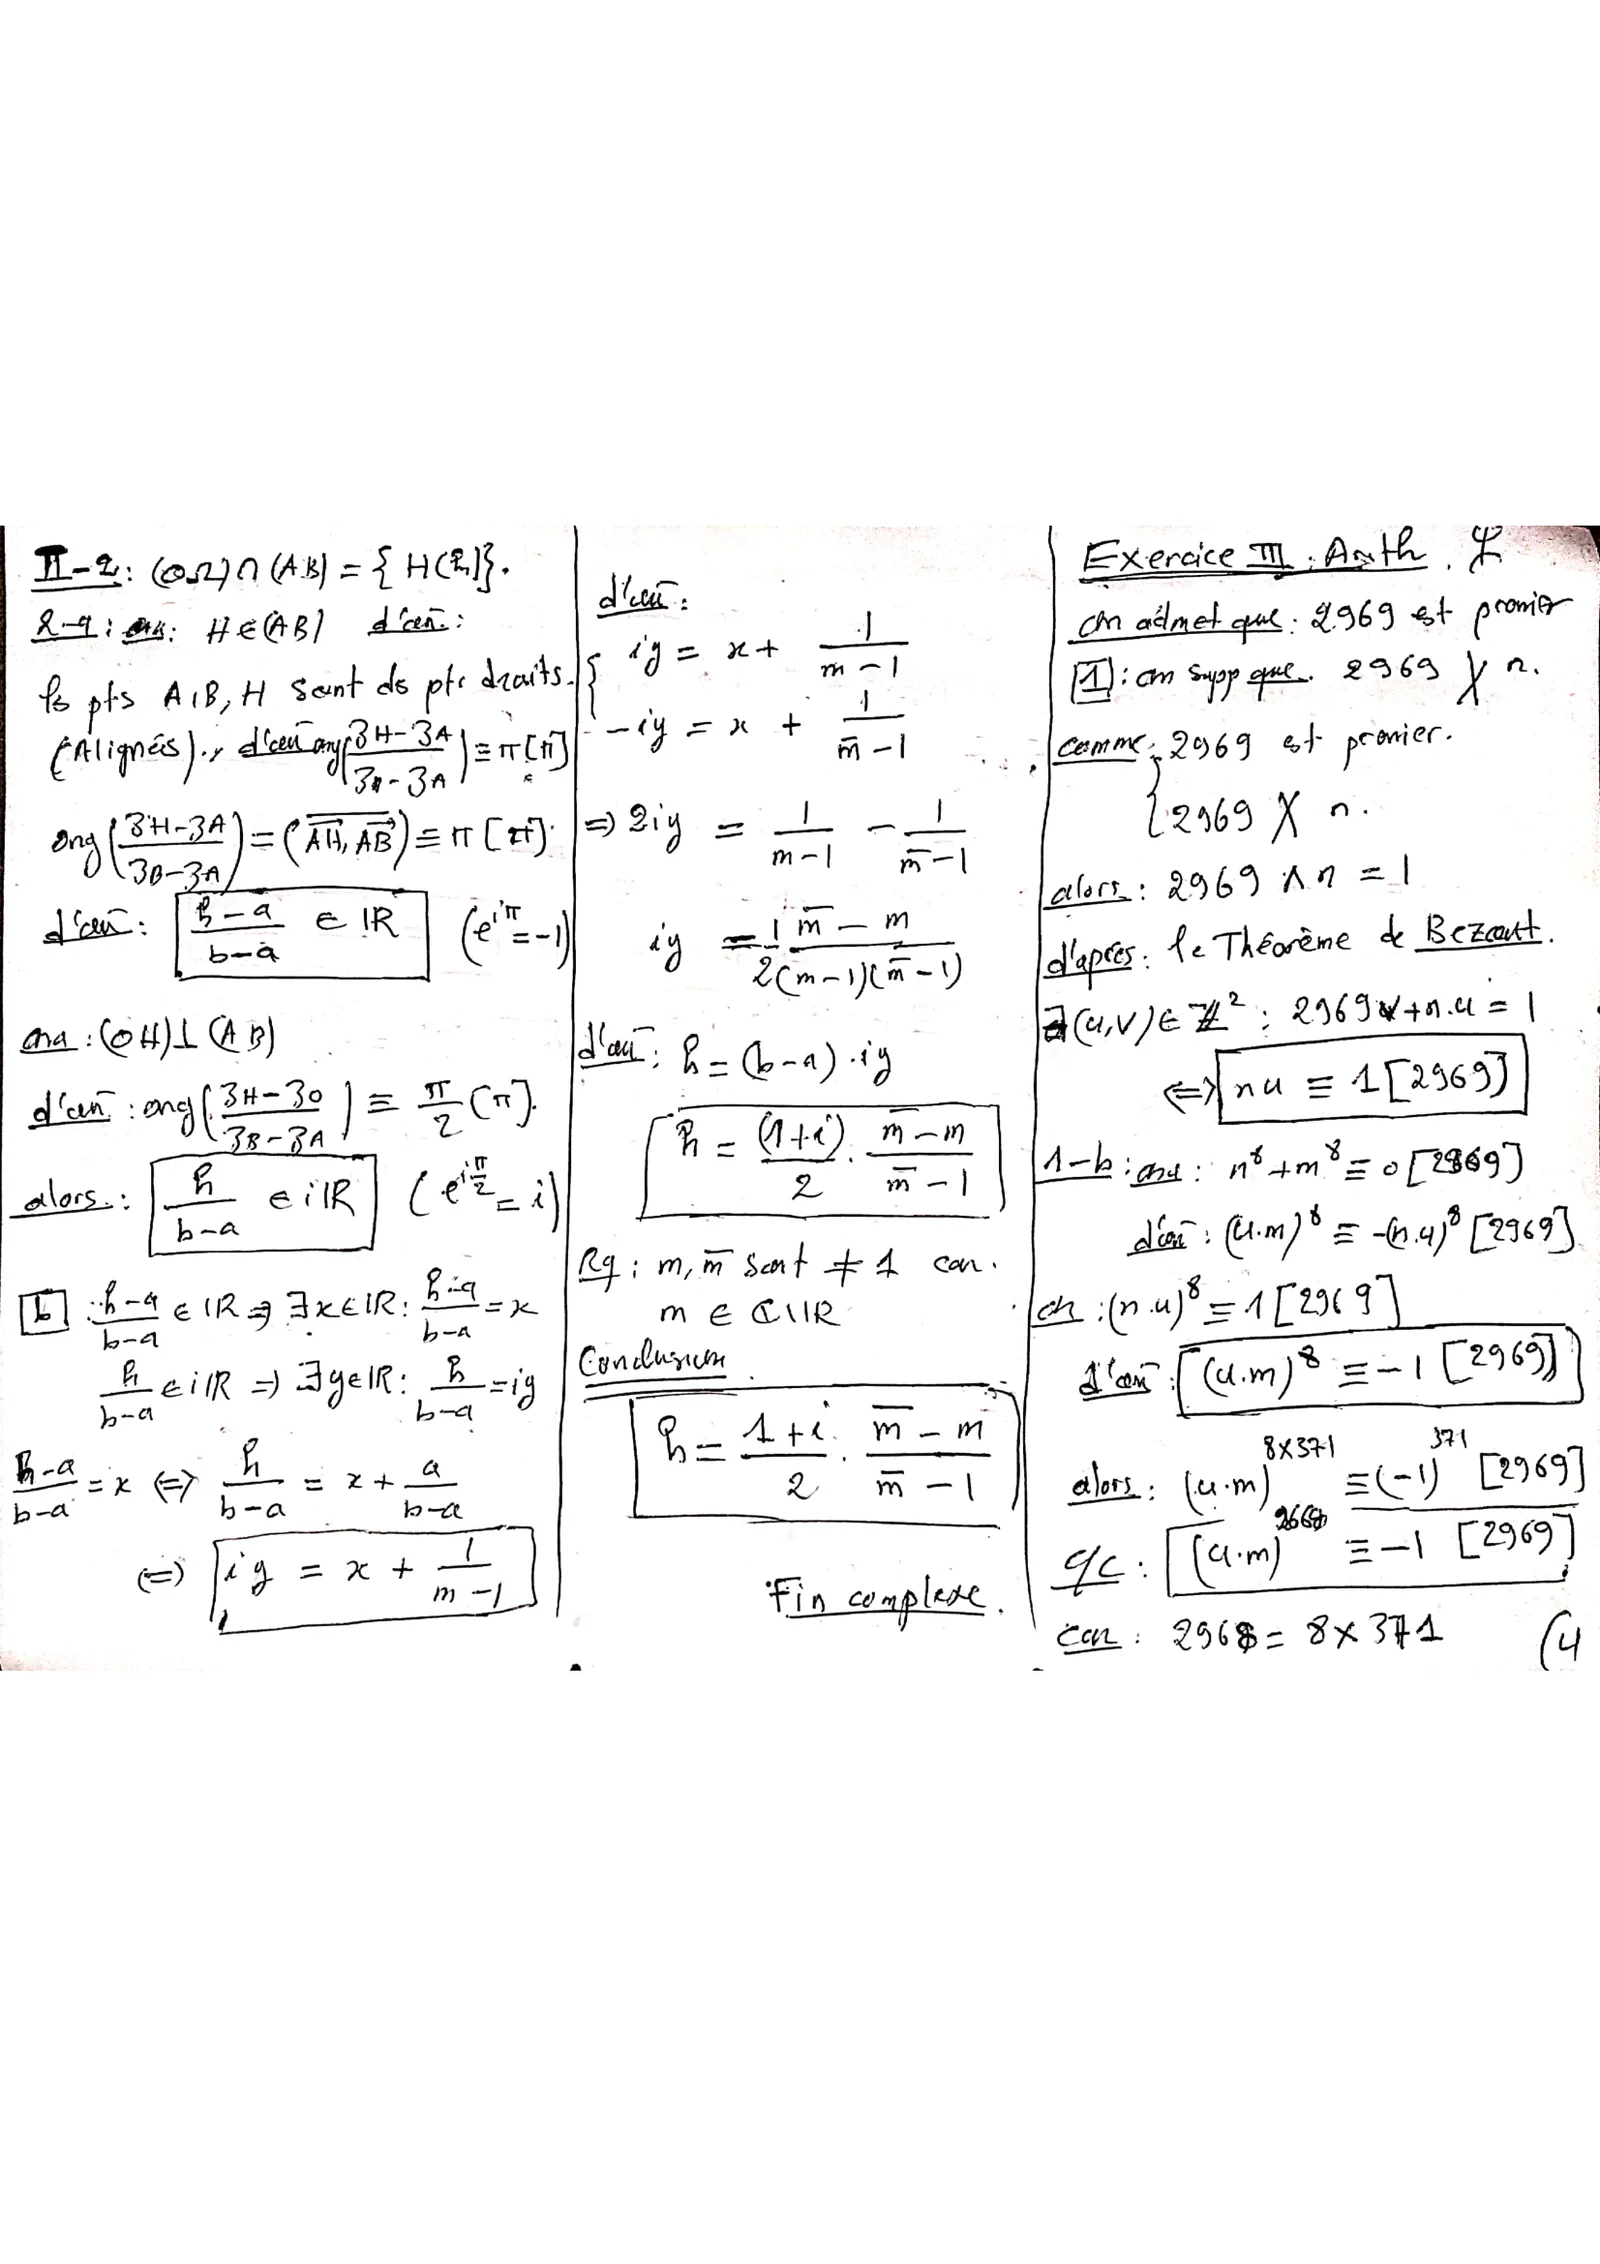 II-2: (OΩ)∩(AB) = { H(h)}.
2-a: ona: H∈(AB) d'où:
les pts A,B,H sont ds ptr droits.
(Alignés)., d'où arg((zH-zA)/(zB-zA)) ≡ π[π]
arg((zH-zA)/(zB-zA)) = (AH, AB) ≡ π [π].
d'où: (h-a)/(b-a) ∈ IR (e^{iπ} = -1)
ona: (OH)⊥(AB)
d'où: arg((zH-zO)/(zB-zA)) ≡ π/2 [π].
alors: h/(b-a) ∈ iIR (e^{iπ/2} = i)
b : (h-a)/(b-a) ∈ IR ⇒ ∃x∈IR: (h-a)/(b-a) = x
h/(b-a) ∈ iIR ⇒ ∃y∈IR: h/(b-a) = iy
(h-a)/(b-a) = x ⇔ h/(b-a) = x + a/(b-a)
⇔ iy = x + 1/(m-1)
d'où:
{ iy = x + 1/(m-1)
-iy = x + 1/(m̄-1)
⇒ 2iy = 1/(m-1) - 1/(m̄-1)
iy = 1/2 (m̄-m)/((m-1)(m̄-1))
d'où: h = (b-a).iy
h = (1+i)/2 . (m̄-m)/(m̄-1)
Rq: m, m̄ sont ≠ 1 car.
m ∈ ℂ\IR
Conclusion
h = (1+i)/2 . (m̄-m)/(m̄-1)
Fin complexe.
Exercice III: Arith.
on admet que: 2969 est premier
1: on supp que. 2969 ∤ n.
comme: 2969 est premier.
{ 2969 ∤ n.
alors: 2969 ∧ n = 1
d'après: le Théorème de Bezout.
∃(u,v)∈ℤ²: 2969v+n.u = 1
⇔ nu ≡ 1[2969]
1-b: ona: n⁸+m⁸ ≡ 0[2969]
d'où: (u.m)⁸ ≡ -(n.u)⁸ [2969]
or: (n.u)⁸ ≡ 1[2969]
d'où: (u.m)⁸ ≡ -1 [2969]
alors: (u.m)^{8×371} ≡ (-1)^{371} [2969]
qc: (u.m)^{2968} ≡ -1 [2969]
car: 2968 = 8×371
(4